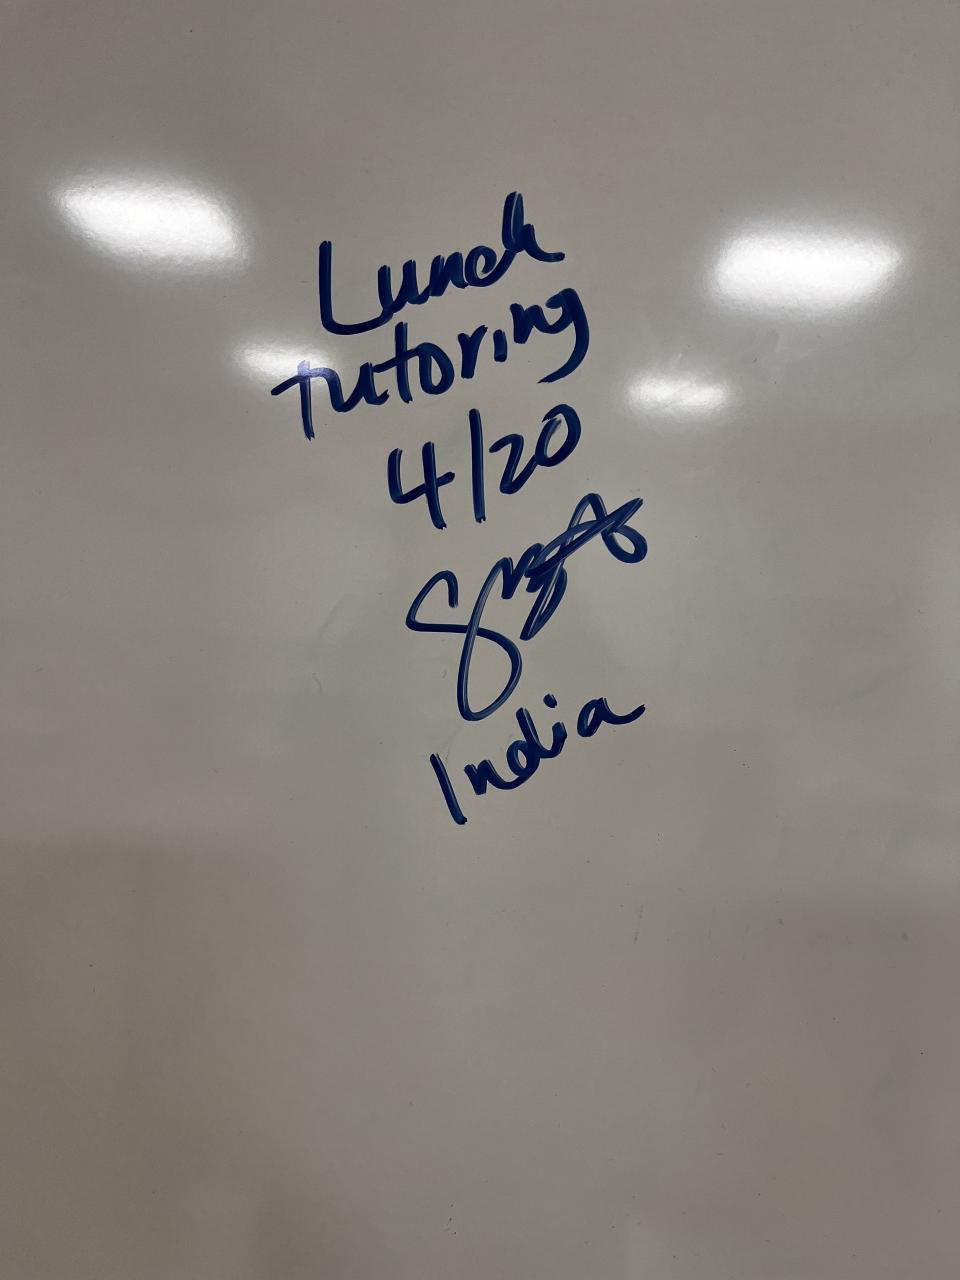 Lunch
tutoring
4/20
India